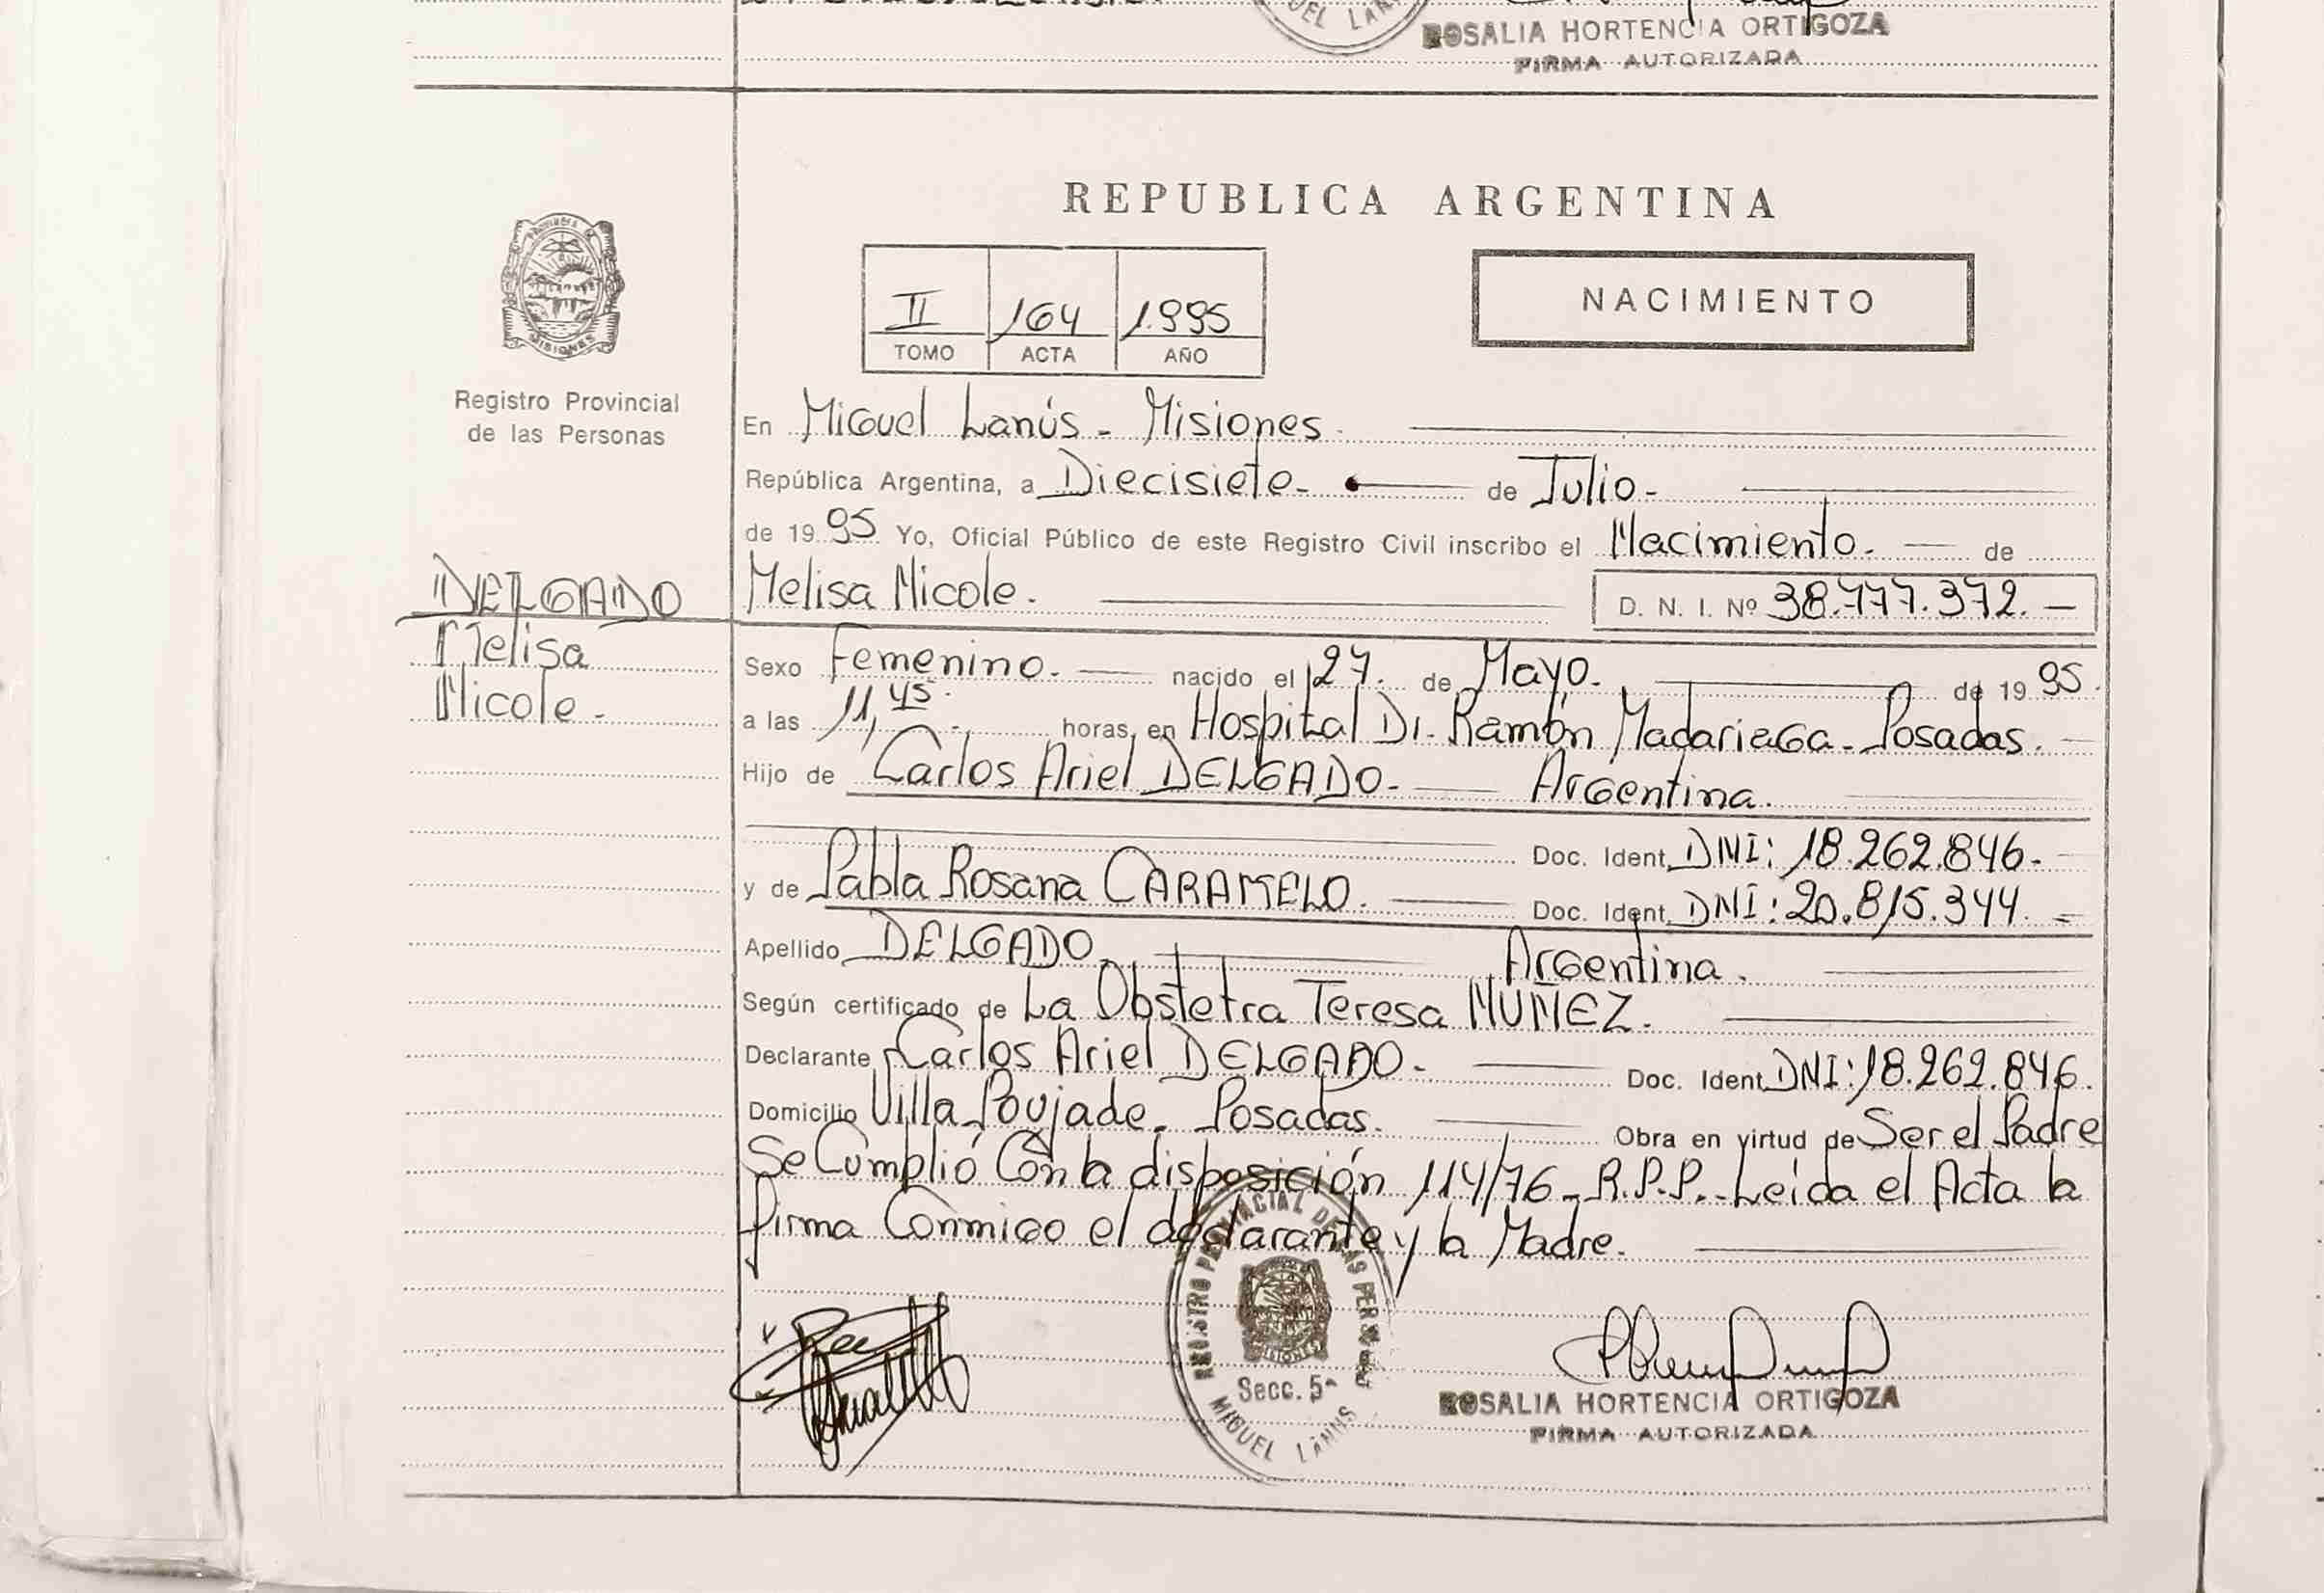 MIGUEL LAN
ROSALIA HORTENCIA ORTIGOZA
FIRMA AUTORIZADA
REPUBLICA ARGENTINA
PROVINCIA DE
MISIONES
II 164 1.995
TOMO ACTA AÑO
NACIMIENTO
Registro Provincial
de las Personas
En Miguel Lanús - Misiones.
República Argentina, a Diecisiete- de Julio-
de 1995 Yo, Oficial Público de este Registro Civil inscribo el Nacimiento. de
DELGADO
Melisa
Nicole.-
Melisa Nicole. D. N. I. Nº 38.777.372.
Sexo Femenino. nacido el 27. de Mayo. de 1995.
a las 11,45. horas, en Hospital Dr. Ramón Madariaga- Posadas.
Hijo de Carlos Ariel DELGADO- Argentina.
Doc. Ident. DNI: 18.262.846-
y de Pabla Rosana CARAMELO. Doc. Ident. DNI: 20.815.344.
Apellido DELGADO. Argentina.
Según certificado de La Obstetra Teresa NUÑEZ.
Declarante Carlos Ariel DELGADO. Doc. Ident. DNI: 18.262.846.
Domicilio Villa Poujade. Posadas. Obra en virtud de Ser el Padre
Se Cumplió Con la disposición 114/76- R.P.P.- Leída el Acta la
firma Conmigo el declarante y la Madre.
REGISTRO PROVINCIAL DE LAS PERSONAS
MISIONES
Secc. 5ª
MIGUEL LANUS
ROSALIA HORTENCIA ORTIGOZA
FIRMA AUTORIZADA